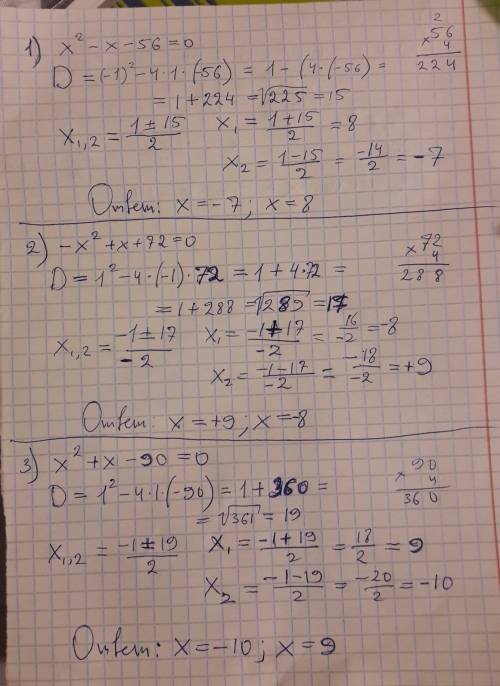 1) x² - x - 56 = 0
D = (-1)² - 4·1·(-56) = 1 - (4·(-56) =
= 1 + 224 = √225 = 15
x₁,₂ = 1±15/2 x₁ = 1+15/2 = 8
x₂ = 1-15/2 = -14/2 = -7
2
×56
4
224
Ответ: x = -7; x = 8
2) -x² + x + 72 = 0
D = 1² - 4·(-1)·72 = 1 + 4·72 =
= 1 + 288 = √289 = 17
×72
4
288
x₁,₂ = -1±17/-2 x₁ = -1+17/-2 = 16/-2 = -8
x₂ = -1-17/-2 = -18/-2 = +9
Ответ: x = +9; x = -8
3) x² + x - 90 = 0
D = 1² - 4·1·(-90) = 1 + 360 =
= √361 = 19
×90
4
360
x₁,₂ = -1±19/2 x₁ = -1+19/2 = 18/2 = 9
x₂ = -1-19/2 = -20/2 = -10
Ответ: x = -10; x = 9